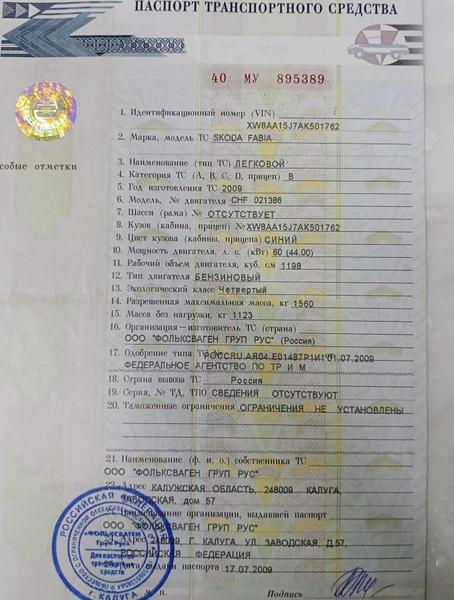 ПАСПОРТ ТРАНСПОРТНОГО СРЕДСТВА
40 МУ 895389
1. Идентификационный номер (VIN)
XW8AA15J7AK501762
2. Марка, модель ТС SKODA FABIA
особые отметки
3. Наименование (тип ТС) ЛЕГКОВОЙ
4. Категория ТС (А, В, С, D, прицеп) B
5. Год изготовления ТС 2009
6. Модель, № двигателя CHF 021386
7. Шасси (рама) № ОТСУТСТВУЕТ
8. Кузов (кабина, прицеп) №XW8AA15J7AK501762
9. Цвет кузова (кабины, прицепа) СИНИЙ
10. Мощность двигателя, л. с. (кВт) 60 (44.00)
11. Рабочий объем двигателя, куб. см 1198
12. Тип двигателя БЕНЗИНОВЫЙ
13. Экологический класс Четвертый
14. Разрешенная максимальная масса, кг 1560
15. Масса без нагрузки, кг 1123
16. Организация—изготовитель ТС (страна)
ООО "ФОЛЬКСВАГЕН ГРУП РУС" (Россия)
17. Одобрение типа 01.07.2009
ФЕДЕРАЛЬНОЕ АГЕНТСТВО ПО ТР И М
18. Страна вывоза ТС Россия
19. Серия, № ТД, ТПО СВЕДЕНИЯ ОТСУТСТВУЮТ
20. Таможенные ограничения ОГРАНИЧЕНИЯ НЕ УСТАНОВЛЕНЫ
21. Наименование (ф. и. о.) собственника ТС
ООО "ФОЛЬКСВАГЕН ГРУП РУС"
22. Адрес КАЛУЖСКАЯ ОБЛАСТЬ, 248009 КАЛУГА,
ЗАВОДСКАЯ, дом 57
Наименование организации, выдавшей паспорт
ООО "ФОЛЬКСВАГЕН ГРУП РУС"
Г. КАЛУГА УЛ. ЗАВОДСКАЯ, Д.57,
РОССИЙСКАЯ ФЕДЕРАЦИЯ
Дата выдачи паспорта 17.07.2009
М. п. Подпись
РОССИЙСКАЯ
"ФОЛЬКСВАГЕН
Груп Рус"
Для паспортов
транспортных
средств
Г. КАЛУГА